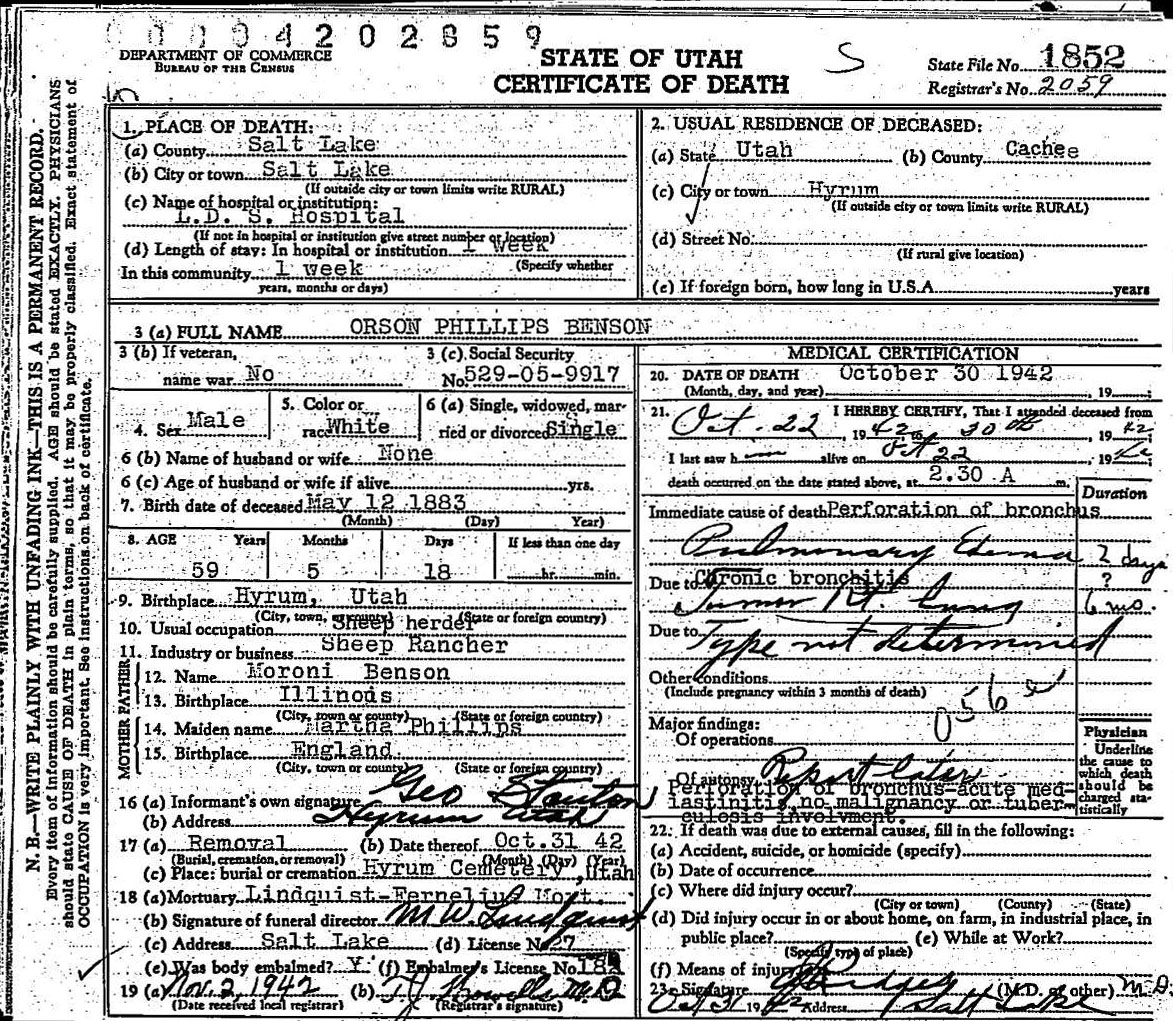 0 0 0 4 2 0 2 8 5 9
DEPARTMENT OF COMMERCE
BUREAU OF THE CENSUS
STATE OF UTAH
CERTIFICATE OF DEATH
S
State File No. 1852
Registrar's No. 2059
N. B.—WRITE PLAINLY WITH UNFADING INK—THIS IS A PERMANENT RECORD.
Every item of information should be carefully supplied. AGE should be stated EXACTLY. PHYSICIANS
should state CAUSE OF DEATH in plain terms, so that it may be properly classified. Exact statement of
OCCUPATION is very important. See instructions on back of certificate.
1. PLACE OF DEATH:
(a) County Salt Lake
(b) City or town Salt Lake
(If outside city or town limits write RURAL)
(c) Name of hospital or institution:
L.D. S. Hospital
(If not in hospital or institution give street number or location)
(d) Length of stay: In hospital or institution 1 week
(Specify whether
In this community 1 week
years, months or days)
2. USUAL RESIDENCE OF DECEASED:
(a) State Utah (b) County Cachee
(c) City or town Hyrum
(If outside city or town limits write RURAL)
(d) Street No.
(If rural give location)
(e) If foreign born, how long in U.S.A. years
3 (a) FULL NAME ORSON PHILLIPS BENSON
3 (b) If veteran,
name war No
3 (c) Social Security
No. 529-05-9917
4. Sex Male
5. Color or
race White
6 (a) Single, widowed, mar-
ried or divorced Single
6 (b) Name of husband or wife None
6 (c) Age of husband or wife if alive yrs.
7. Birth date of deceased May 12 1883
(Month) (Day) Year)
8. AGE Years Months Days If less than one day
59 5 18 hr. min.
9. Birthplace Hyrum, Utah
(City, town, or county) (State or foreign country)
10. Usual occupation Sheep herder
11. Industry or business Sheep Rancher
FATHER
12. Name Moroni Benson
13. Birthplace Illinois
(City, town or county) (State or foreign country)
MOTHER
14. Maiden name Martha Phillips
15. Birthplace England
(City, town or county) (State or foreign country)
16 (a) Informant's own signature Geo Stanton
(b) Address Hyrum Utah
17 (a) Removal (b) Date thereof Oct.31 42
(Burial, cremation, or removal) (Month) (Day) (Year)
(c) Place: burial or cremation Hyrum Cemetery, Utah
18 (a) Mortuary Lindquist-Fernelius Mort.
(b) Signature of funeral director M W Lindquist
(c) Address Salt Lake (d) License No. 27
(e) Was body embalmed? Y (f) Embalmer's License No.
19 (a) Nov. 2, 1942 (b) M.D.
(Date received local registrar) (Registrar's signature)
MEDICAL CERTIFICATION
20. DATE OF DEATH October 30 1942
(Month, day, and year) 19
21. I HEREBY CERTIFY, That I attended deceased from
Oct. 22, 1942 to 30th, 1942
I last saw h alive on Oct 22, 19
death occurred on the date stated above, at 2.30 A m.
Duration
Immediate cause of death Perforation of bronchus
Pulmonary Edema 2 days
Due to Chronic bronchitis ?
Tumor Rt. Lung 6 mo.
Due to Type not determined
Other conditions
(Include pregnancy within 3 months of death)
056
Major findings:
Of operations
Of autopsy Report later
Perforation of bronchus-acute med-
iastinitis no malignancy or tuber-
culosis involvment.
Physician
Underline
the cause to
which death
should be
charged sta-
tistically
22. If death was due to external causes, fill in the following:
(a) Accident, suicide, or homicide (specify)
(b) Date of occurrence
(c) Where did injury occur?
(City or town) (County) (State)
(d) Did injury occur in or about home, on farm, in industrial place, in
public place? (e) While at Work?
(Specify type of place)
(f) Means of injury
23. Signature (M.D. or other) M.D.
Oct 31 1942 Address Salt Lake